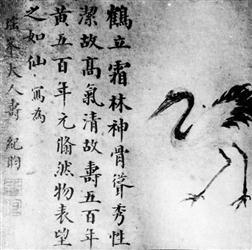 鶴立霜林神骨聳秀性
潔故髙氣清故壽五百年
黄五百年元脩然物表望
之如仙 寫為
夫人壽 紀昀